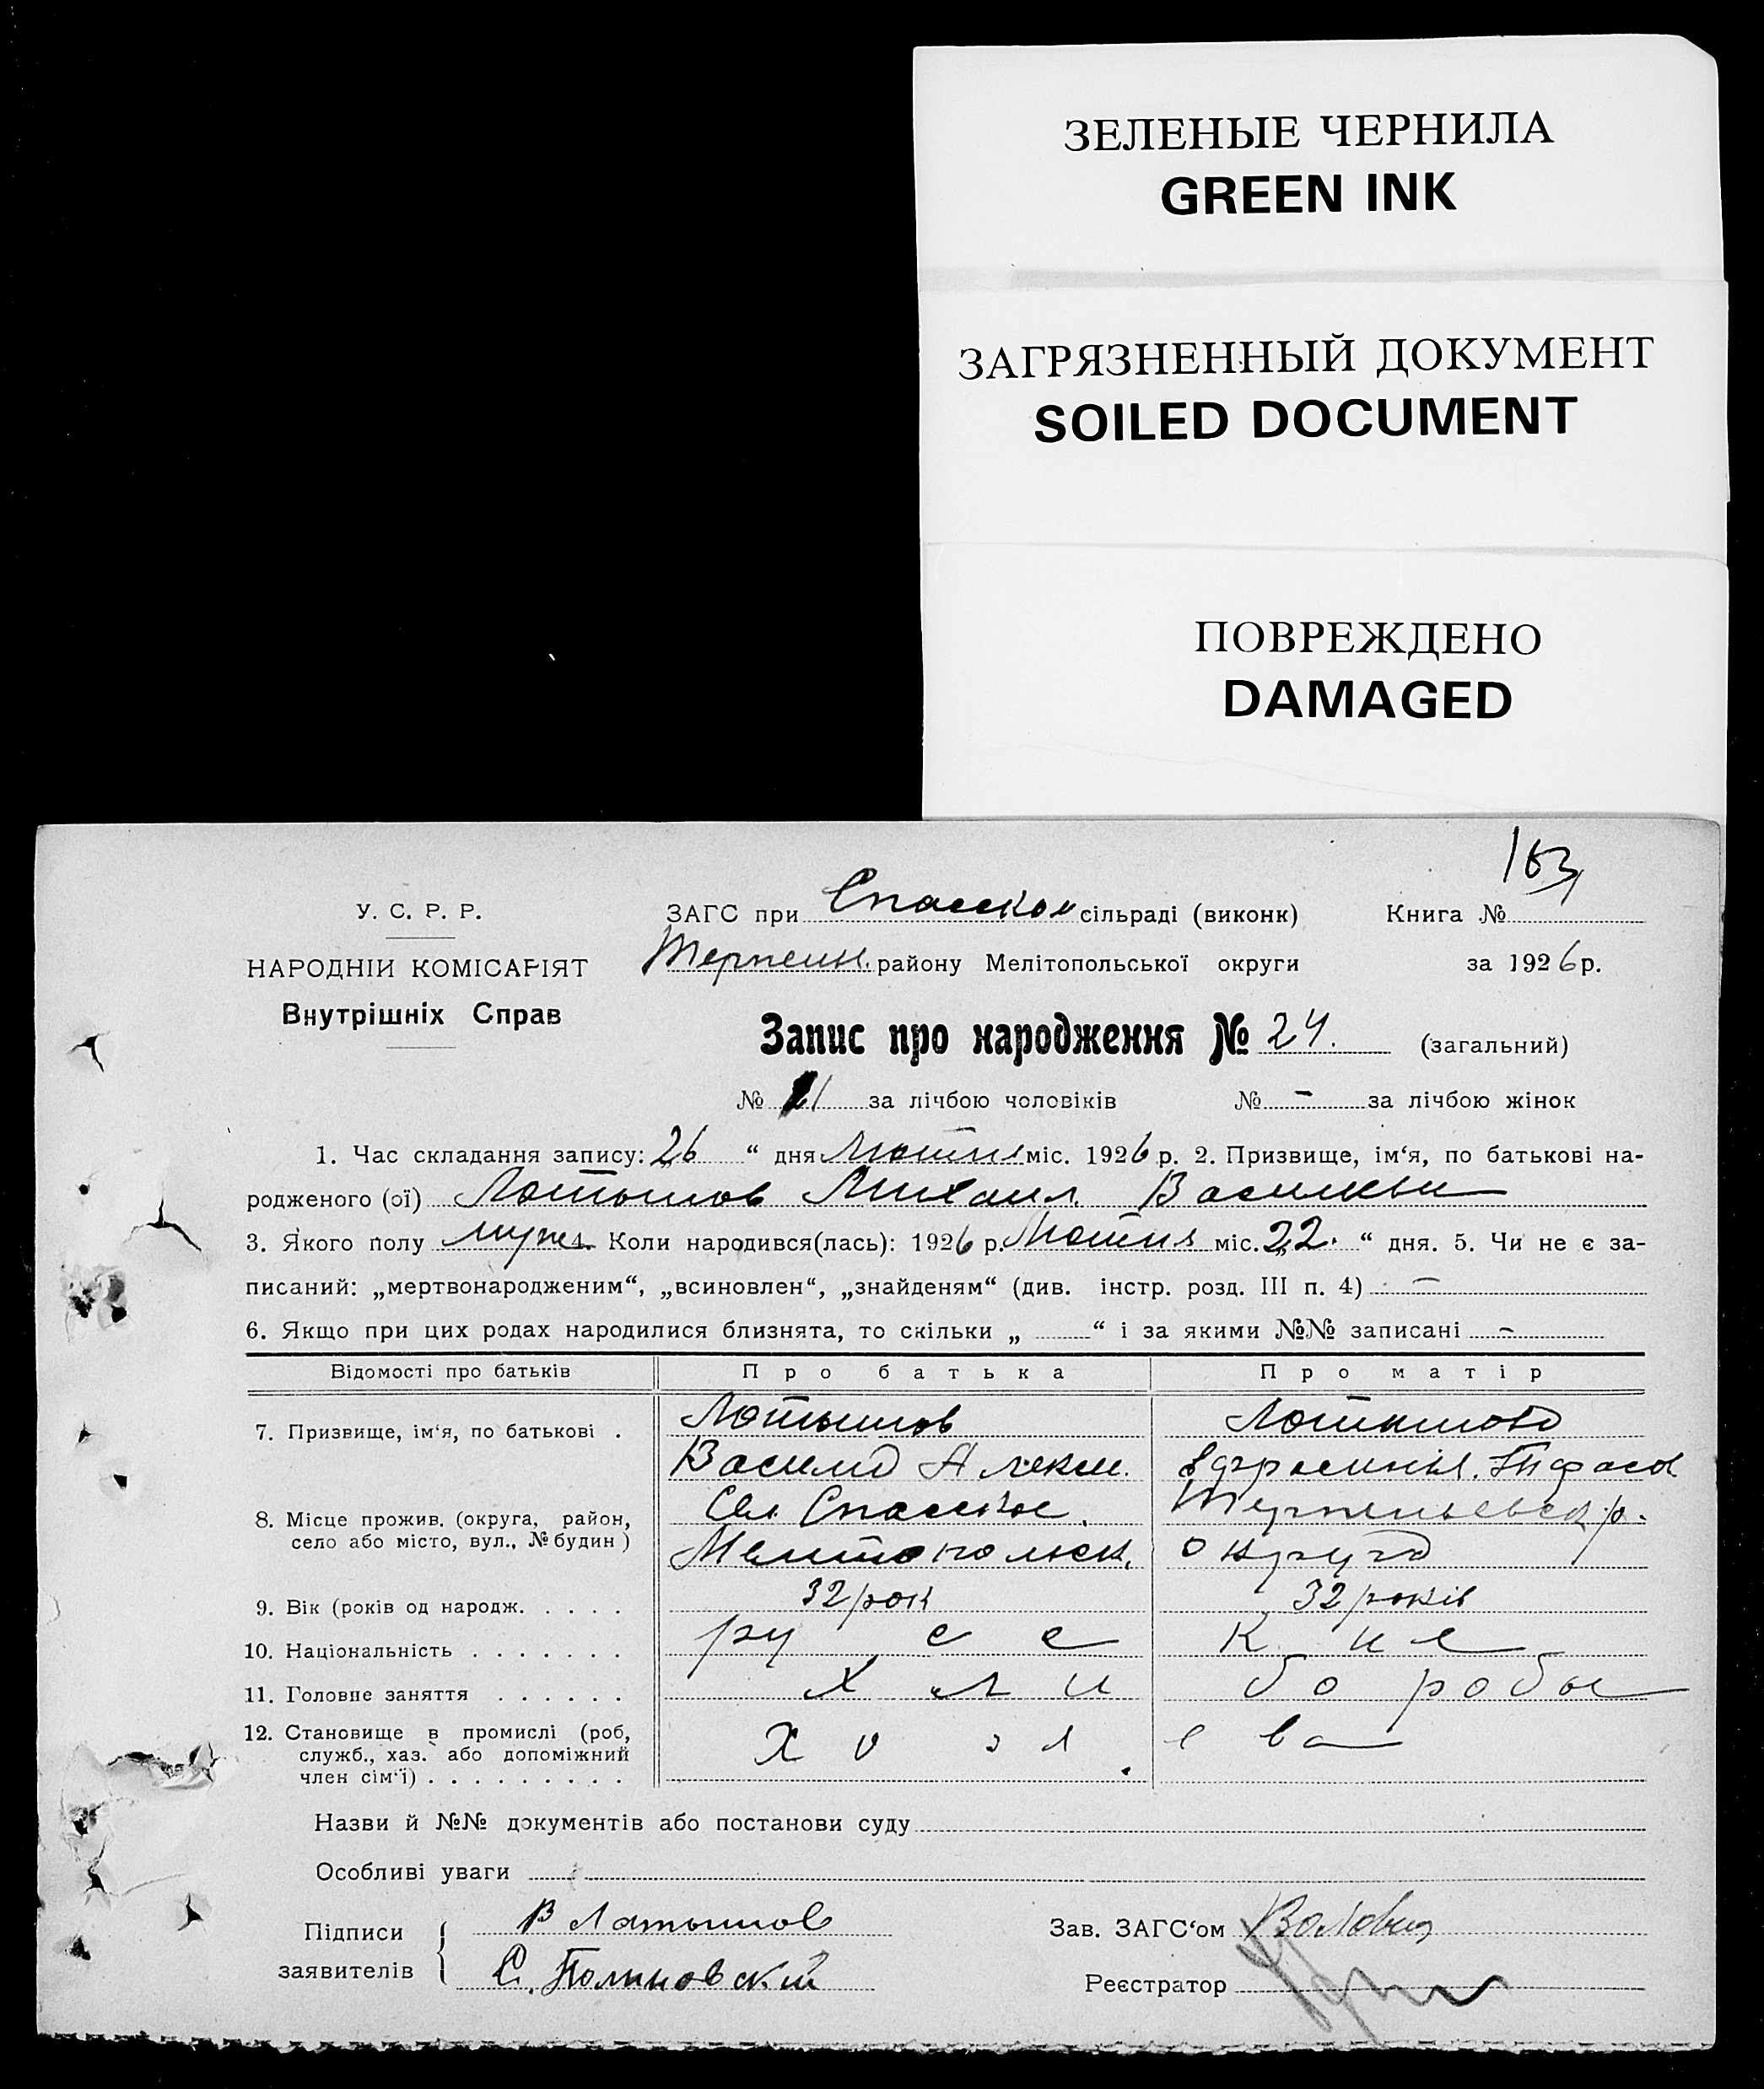 ЗЕЛЕНЫЕ ЧЕРНИЛА
GREEN INK
ЗАГРЯЗНЕННЫЙ ДОКУМЕНТ
SOILED DOCUMENT
ПОВРЕЖДЕНО
DAMAGED
163
У. С. Р. Р.
НАРОДНІЙ КОМІСАРІЯТ
Внутрішніх Справ
ЗАГС при Спасском сільраді (виконк) Книга №
Терпени. району Мелітопольської округи за 1926 р.
Запис про народження № 24. (загальний)
№ 21 за лічбою чоловіків № – за лічбою жінок
1. Час складання запису: 26 “ дня Лютня міс. 1926 р. 2. Призвище, ім‘я, по батькові на-
родженого (ої) Латышов Михаил Васильи
3. Якого полу муж 4. Коли народився(лась): 1926 р. Лютня міс. „22. “ дня. 5. Чи не є за-
писаний: „мертвонародженим“, „всиновлен“, „знайденям“ (див. інстр. розд. III п. 4) –
6. Якщо при цих родах народилися близнята, то скільки „ “ і за якими №№ записані –
Відомості про батьків Про батька Про матір
7. Призвище, ім‘я, по батькові . Латышов Латышова
Василий Алексе.
8. Місце прожив. (округа, район, село або місто, вул., № будин) Сел. Спасское. Терпеньевск р.
Мелитопольск. округа
9. Вік (років од народж. . . . . 32 рок 32 років
10. Національність . . . . . . . русс кие
11. Головне заняття . . . . . . хли боробы
12. Становище в промислі (роб, служб., хаз. або допоміжний член сім‘ї) . . . . . . . . . хозя ева
Назви й №№ документів або постанови суду
Особливі уваги
Підписи заявителів { В Латышов
С. Полиновский
Зав. ЗАГС‘ом
Реєстратор